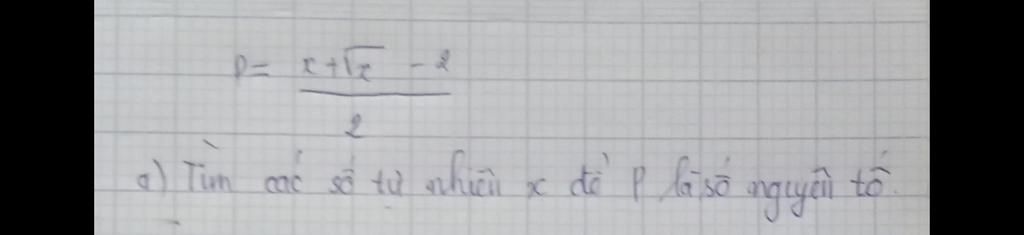 P = x + √x - 2
2
a) Tìm các số tự nhiên x để P là số nguyên tố.